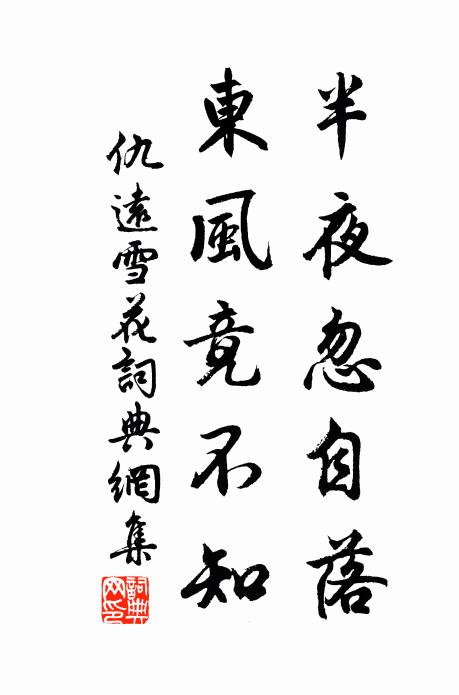 半夜忽自落
東風竟不知
仇遠雪花詞典網集
詞典网印